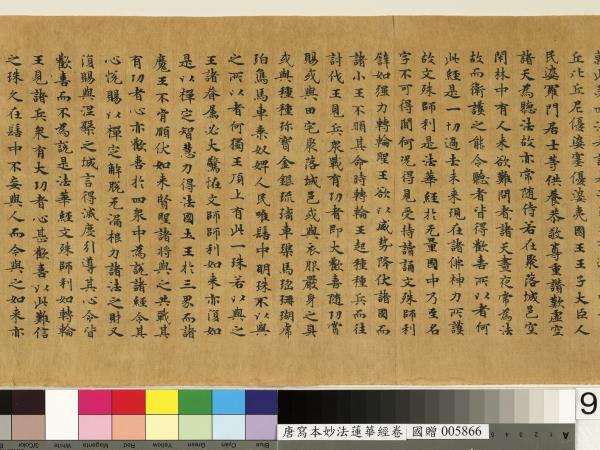 丘比丘尼優婆塞優婆夷國王王子大臣人
民婆羅門居士等供養恭敬尊重讚歎虛空
諸天為聽法故亦常隨侍若在聚落城邑空
閑林中有人來欲難問者諸天晝夜常為法
故而衛護之能令聽者皆得歡喜所以者何
此經是一切過去未來現在諸佛神力所護
故文殊師利是法華經於无量國中乃至名
字不可得聞何況得見受持讀誦文殊師利
譬如强力轉輪聖王欲以威勢降伏諸國而
諸小王不順其命時轉輪王起種種兵而往
討伐王見兵衆戰有功者即大歡喜隨功賞
賜或與田宅聚落城邑或與衣服嚴身之具
或與種種珍寶金銀琉璃車磲馬瑙珊瑚虎
珀鳥馬車乘奴婢人民唯髻中明珠不以與
之所以者何獨王頂上有此一珠若以與之
王諸眷属必大驚怪文殊師利如來亦復如
是以禪定智慧力得法國土王於三界而諸
魔王不肯順伏如來賢聖諸將與之共戰其
有功者心亦歡喜於四衆中為說諸經令其
心悅賜以禪定解脫无漏根力諸法之財又
復賜與涅槃之城言得滅度引導其心令皆
歡喜而不為說是法華經文殊師利如轉輪
王見諸兵衆有大功者心甚歡喜以此難信
之珠久在髻中不妄與人而今與之如來亦
唐寫本妙法蓮華經卷 國贈 005866
3/Color
White
Magenta
Red
Yellow
Green
Cyan
Blue
A
9